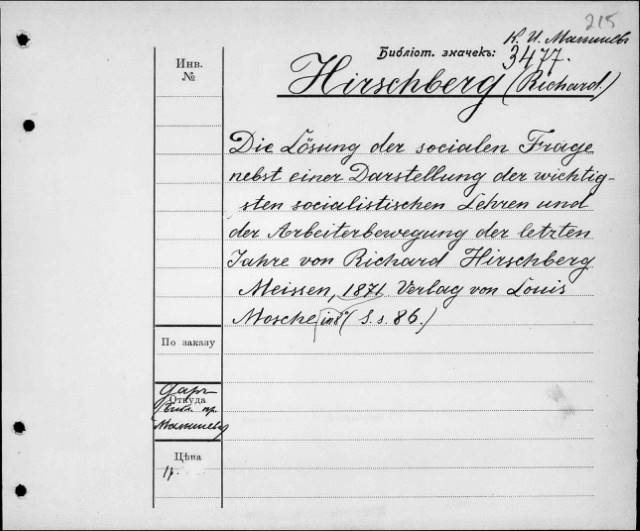 215
Н. И. Маты
Библіот. значекъ: 3477.
Инв.
№
Hirschberg (Richard.)
Die Lösung der socialen Frage
nebst einer Darstellung der wichtig-
sten socialistischen Lehren und
der Arbeiterbewegung der letzten
Jahre von Richard Hirschberg
Meissen, 1871 Verlag von Louis
Mosche in 8° (S. s. 86.)
По заказу
Откуда
Даръ
Цѣна